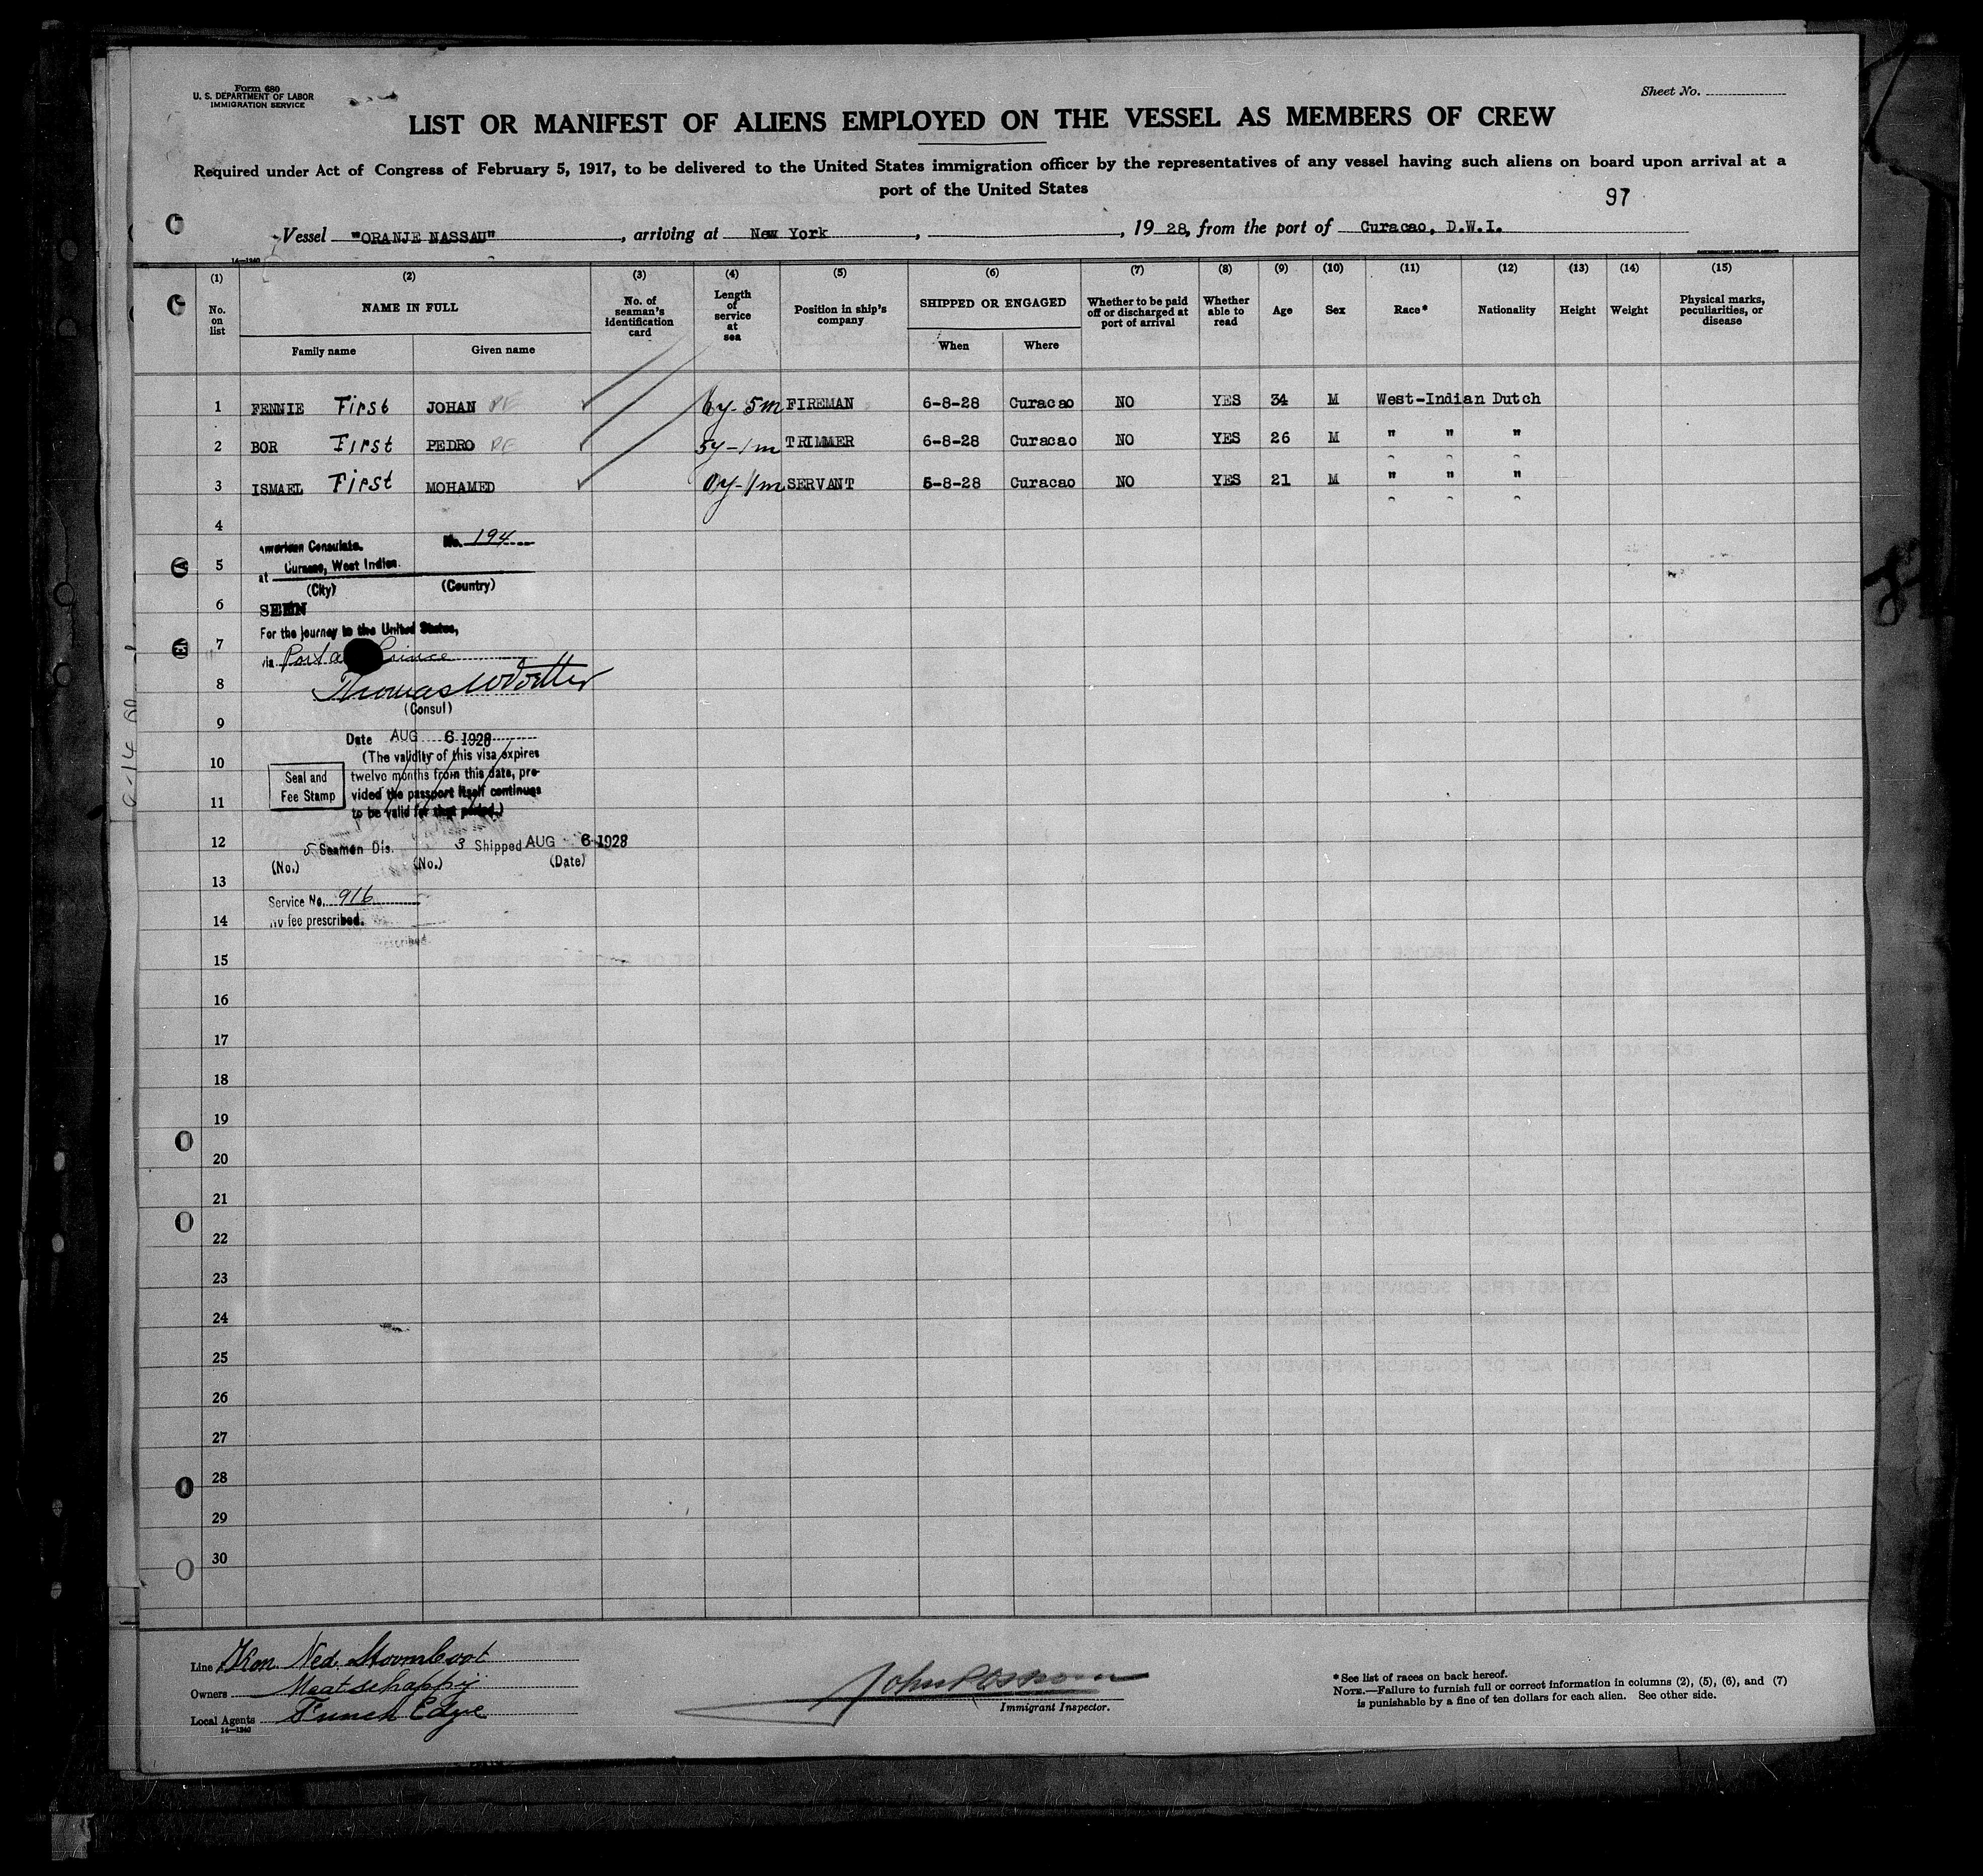 Form 680
U. S. DEPARTMENT OF LABOR
IMMIGRATION SERVICE
Sheet No.
LIST OR MANIFEST OF ALIENS EMPLOYED ON THE VESSEL AS MEMBERS OF CREW
Required under Act of Congress of February 5, 1917, to be delivered to the United States immigration officer by the representatives of any vessel having such aliens on board upon arrival at a
port of the United States
97
Vessel "ORANJE NASSAU", arriving at New York, , 1928, from the port of Curacao, D.W.I.
14—1240
(1) (2) (3) (4) (5) (6) (7) (8) (9) (10) (11) (12) (13) (14) (15)
No. on list NAME IN FULL Family name Given name No. of seaman's identification card Length of service at sea Position in ship's company SHIPPED OR ENGAGED When Where Whether to be paid off or discharged at port of arrival Whether able to read Age Sex Race* Nationality Height Weight Physical marks, peculiarities, or disease
1 FENNIE First JOHAN 6y-5m FIREMAN 6-8-28 Curacao NO YES 34 M West-Indian Dutch
2 BOR First PEDRO 5y-1m TRIMMER 6-8-28 Curacao NO YES 26 M " " "
3 ISMAEL First MOHAMED 0y-1m SERVANT 6-8-28 Curacao NO YES 21 M " " "
4
American Consulate. No. 194
5
at Curacao, West Indies.
(City) (Country)
6
SEEN
For the journey to the United States,
7
via Port au Prince
8
Thomas W
(Consul)
9
Date AUG 6 1928
(The validity of this visa expires
10
Seal and Fee Stamp
twelve months from this date, pro-
vided the passport itself continues
11
to be valid for that period.)
12
5 Seamen Dis. 3 Shipped AUG 6 1928
(No.) (No.) (Date)
13
Service No. 916
14
No fee prescribed.
15
16
17
18
19
20
21
22
23
24
25
26
27
28
29
30
Line Kon. Ned. Stoomboot
Owners Maatschappij
Local Agents Funch Edye
14—1240
John
Immigrant Inspector.
*See list of races on back hereof.
NOTE.—Failure to furnish full or correct information in columns (2), (5), (6), and (7)
is punishable by a fine of ten dollars for each alien. See other side.